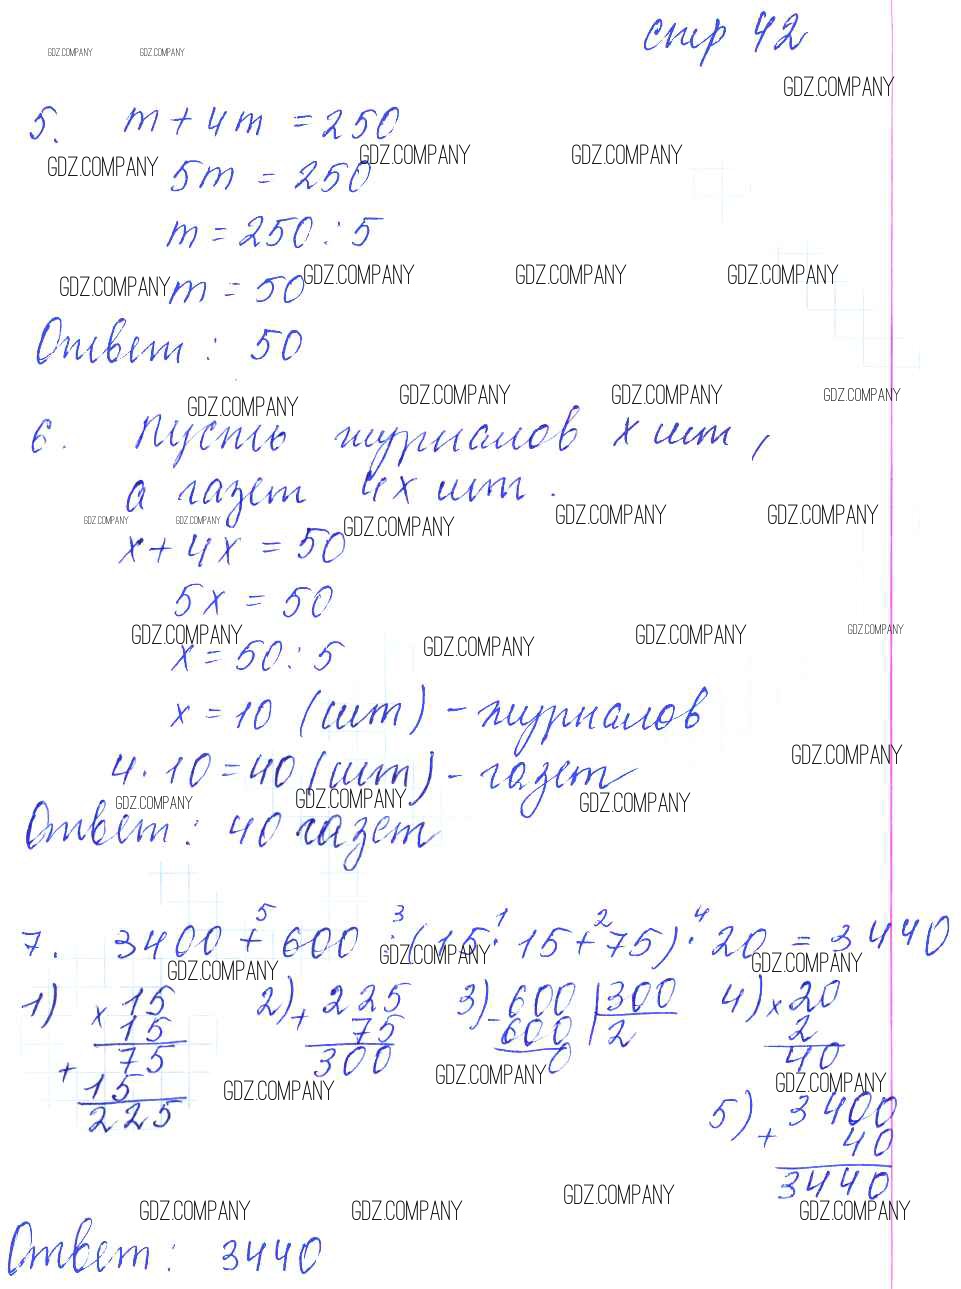 стр 42
GDZ.COMPANY GDZ.COMPANY
GDZ.COMPANY
5. m + 4m = 250
GDZ.COMPANY GDZ.COMPANY GDZ.COMPANY
5m = 250
m = 250 : 5
GDZ.COMPANY GDZ.COMPANY GDZ.COMPANY GDZ.COMPANY
m = 50
Ответ : 50
GDZ.COMPANY GDZ.COMPANY GDZ.COMPANY GDZ.COMPANY
6. Пусть журналов x шт,
а газет 4x шт.
GDZ.COMPANY GDZ.COMPANY GDZ.COMPANY GDZ.COMPANY GDZ.COMPANY
x + 4x = 50
5x = 50
GDZ.COMPANY GDZ.COMPANY GDZ.COMPANY GDZ.COMPANY
x = 50 : 5
x = 10 (шт) - журналов
GDZ.COMPANY
4 · 10 = 40 (шт) - газет
GDZ.COMPANY GDZ.COMPANY GDZ.COMPANY
Ответ : 40 газет
5 3 1 2 4
7. 3400 + 600 : (15 · 15 + 75) · 20 = 3440
GDZ.COMPANY GDZ.COMPANY GDZ.COMPANY
1) × 15
15
+ 75
15
225
2) + 225
75
300
3) - 600 | 300
600 | 2
0
4) × 20
2
40
GDZ.COMPANY GDZ.COMPANY GDZ.COMPANY
5) + 3400
40
3440
GDZ.COMPANY GDZ.COMPANY GDZ.COMPANY GDZ.COMPANY
Ответ : 3440